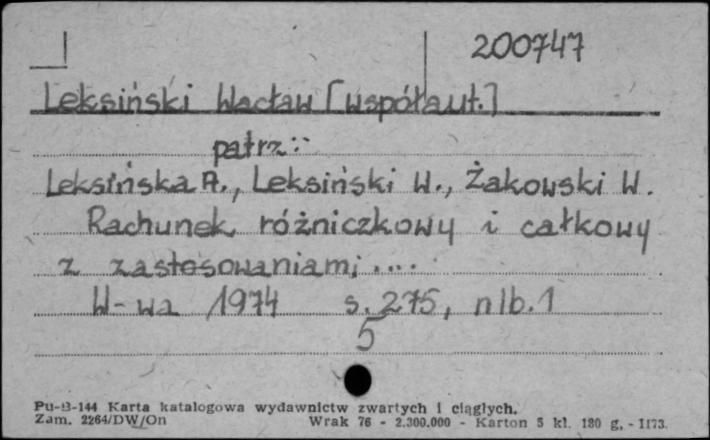 200747
Leksiński Wacław [współaut.]
patrz:
Leksińska A., Leksiński W., Żakowski W.
Rachunek różniczkowy i całkowy
z zastosowaniami....
W-wa 1974 s. 275, nlb. 1
5
Pu-B-144 Karta katalogowa wydawnictw zwartych i ciągłych.
Zam. 2264/DW/On Wrak 76 - 2.300.000 - Karton 5 kl. 180 g. - 1173.